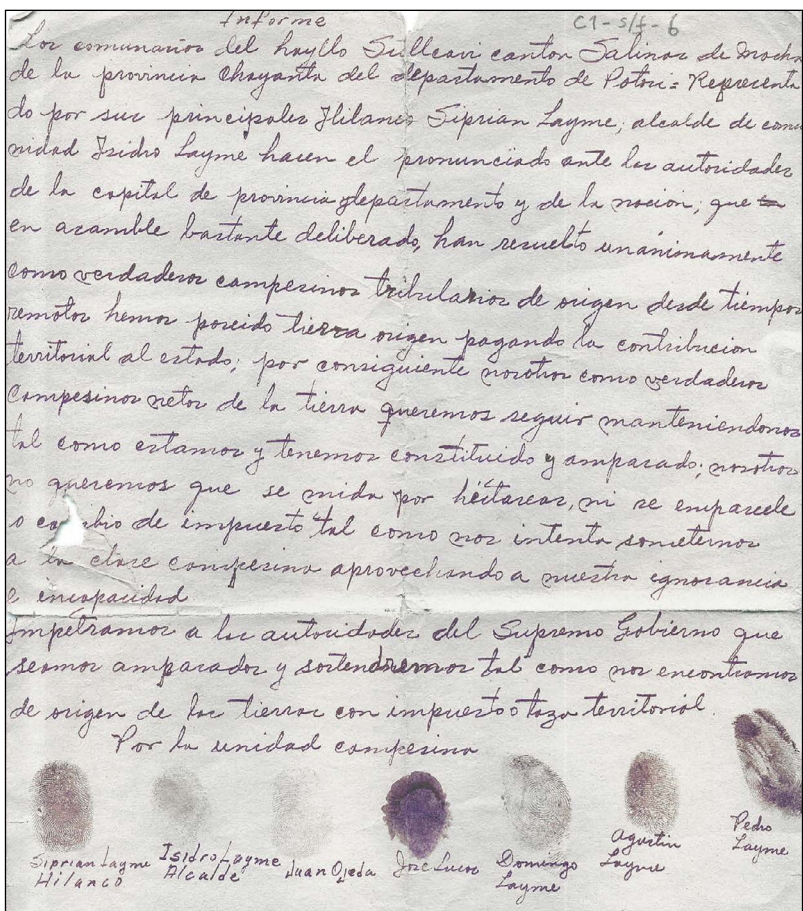 Informe
C1-S/f-6
Los comunarios del hayllo Sullcavi canton Salinas de Macha
de la provincia Chayanta del departamento de Potosi = Representa
do por sus principales Hilanco Siprian Layme, alcalde de comu
nidad Isidro Layme hacen el pronunciado ante las autoridades
de la capital de provincia departamento y de la nacion, que
en asamble bastante deliberado, han resuelto unánimamente
como verdaderos campesinos tributarios de origen desde tiempos
remotos hemos poseido tierra origen pagando la contribucion
territorial al estado; por consiguiente nosotros como verdaderos
campesinos netos de la tierra queremos seguir manteniendonos
tal como estamos y tenemos constituido y amparado; nosotros
no queremos que se mida por héctareas, ni se emparcele
o cambio de impuesto tal como nos intenta someternos
a la clase campesina aprovechando a nuestra ignorancia
e encapacidad
Impetramos a las autoridades del Supremo Gobierno que
seamos amparados y sostendremos tal como nos encontramos
de origen de las tierras con impuesto o taza territorial.
Por la unidad campesina
Siprian Layme
Hilanco
Isidro Layme
Alcalde
Juan Ojeda
José Lucas
Domingo
Layme
Agustin
Layme
Pedro
Layme